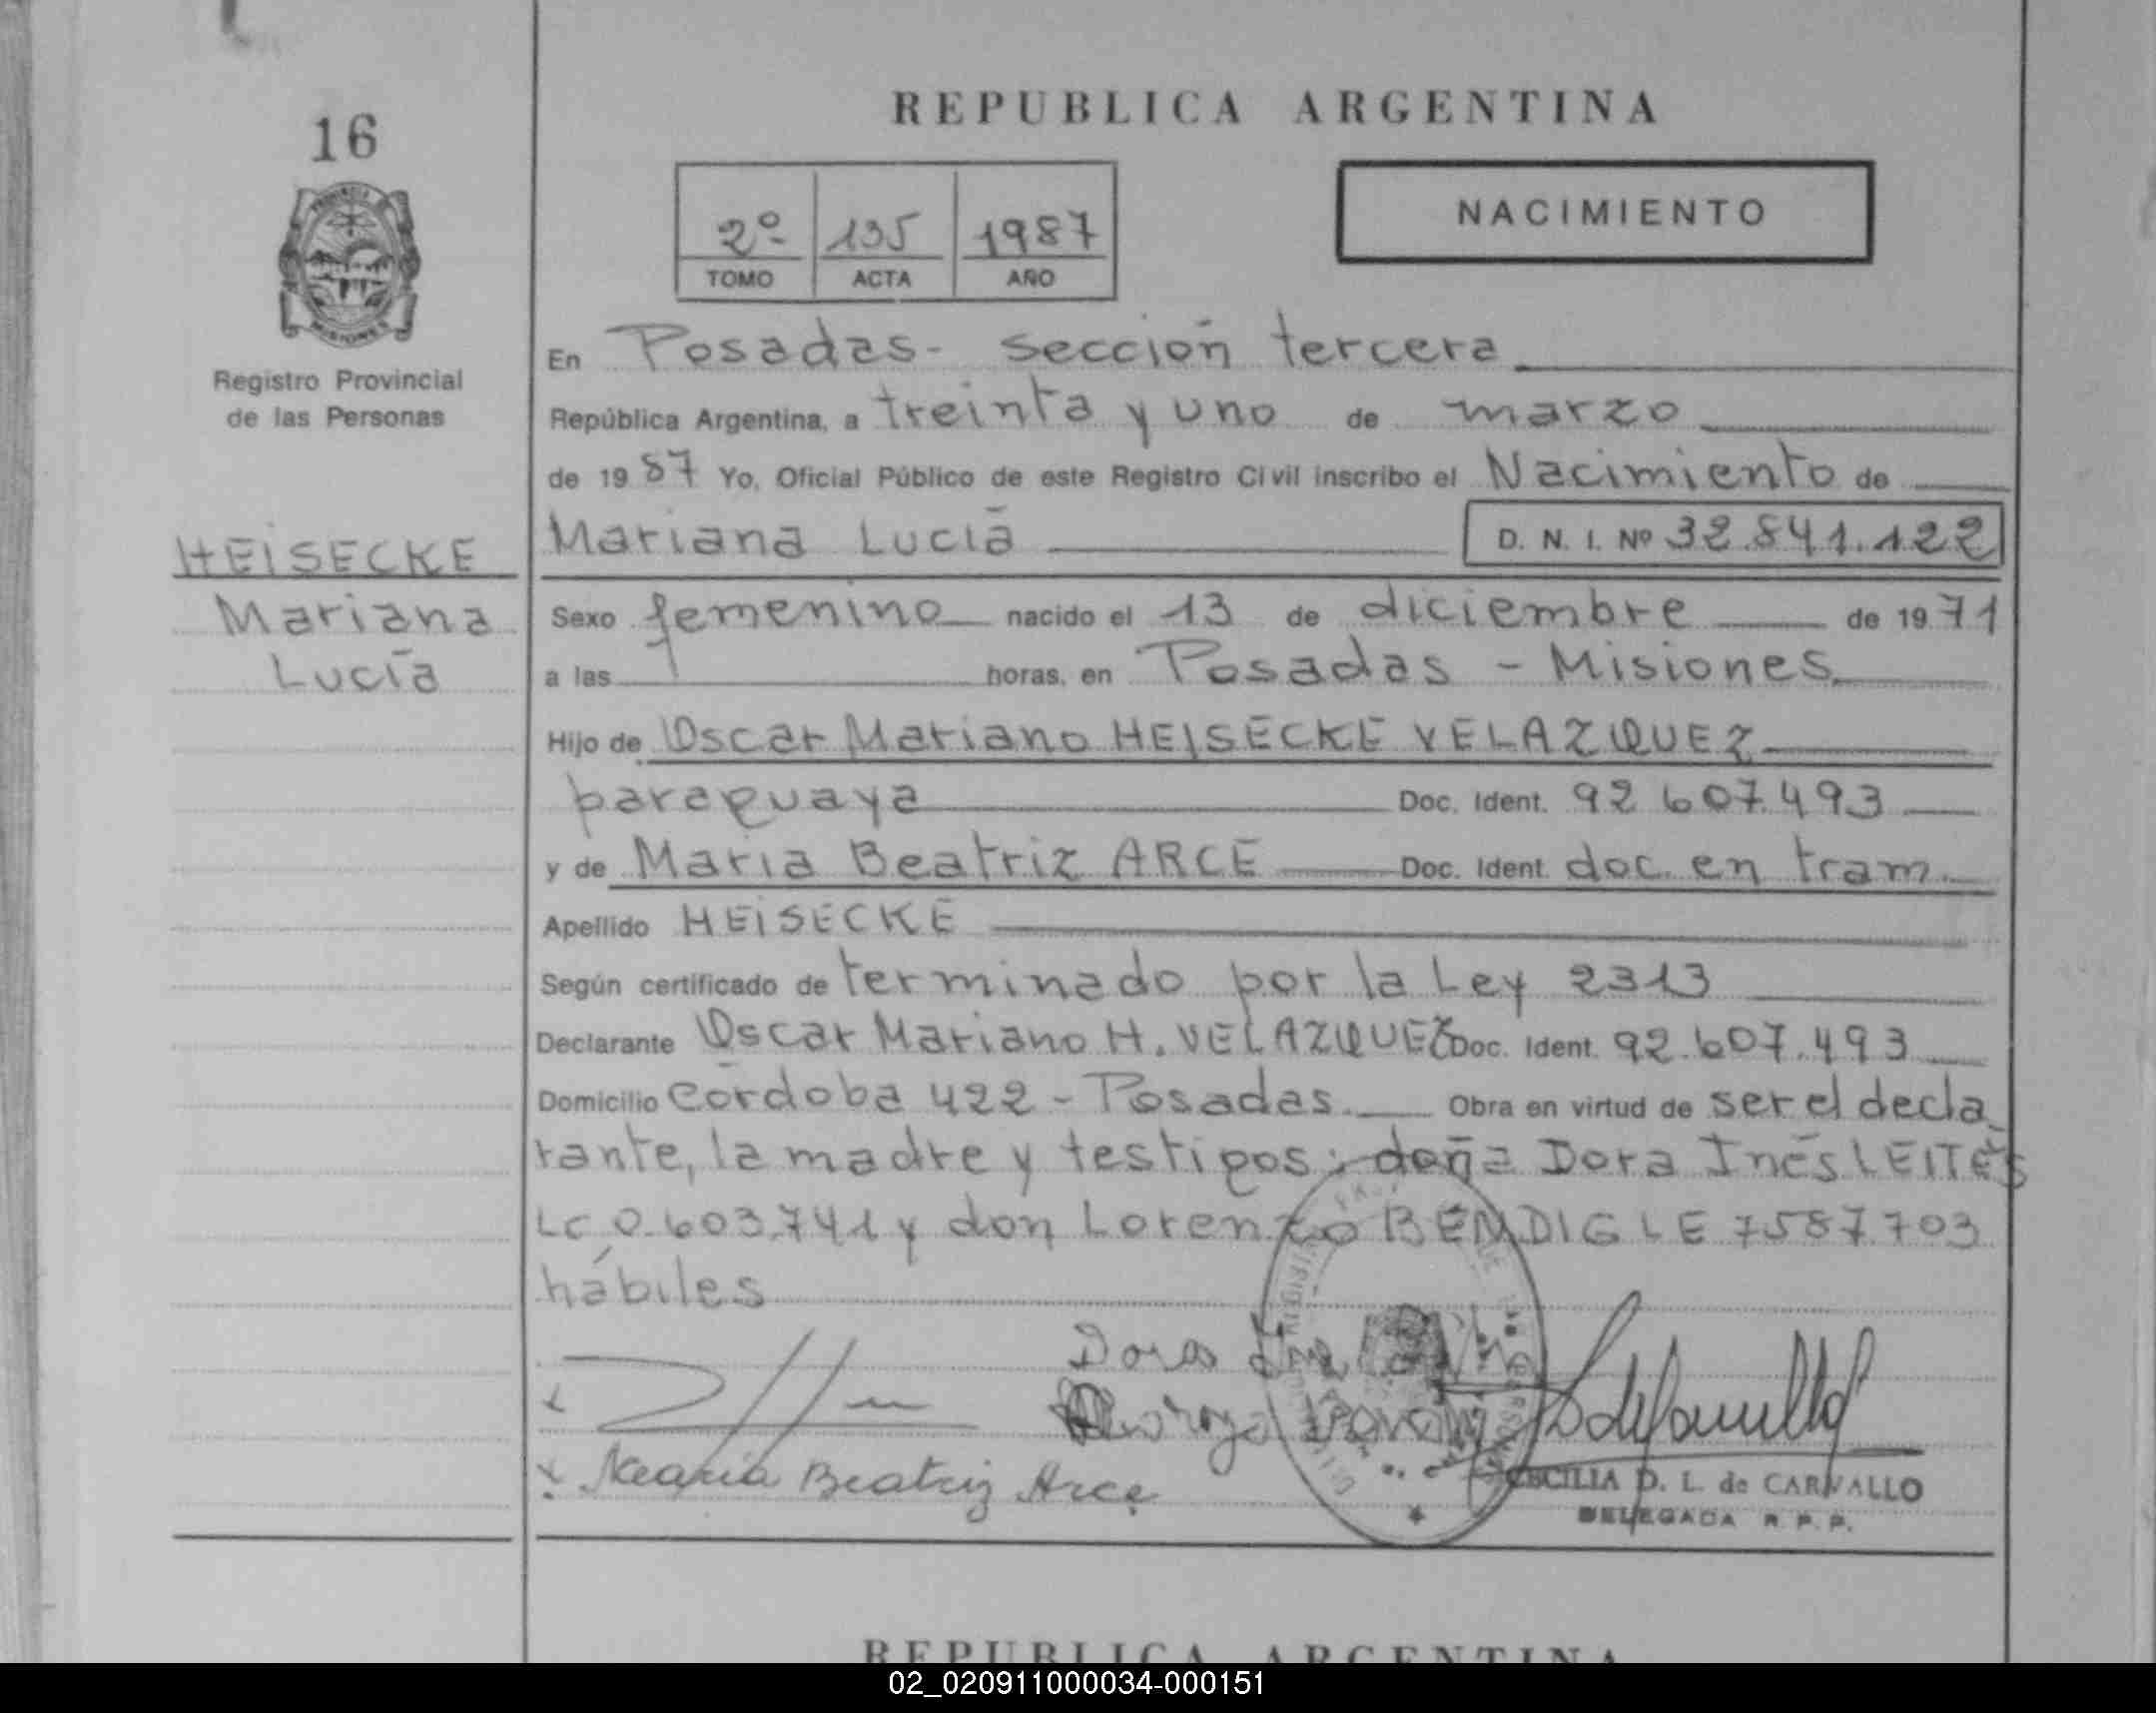 REPUBLICA ARGENTINA
16
NACIMIENTO
2º 135 1987
TOMO ACTA AÑO
Registro Provincial
de las Personas
HEISECKE
Mariana
Lucía
En Posadas - sección tercera
República Argentina, a treinta y uno de marzo
de 1987 Yo, Oficial Público de este Registro Civil inscribo el Nacimiento de
Mariana Lucía D. N. I. Nº 32.841.122
Sexo femenino nacido el 13 de diciembre de 1971
a las horas, en Posadas - Misiones
Hijo de Oscar Mariano HEISECKE VELAZQUEZ
paraguaya Doc. Ident. 92 607.493
y de Maria Beatriz ARCE Doc. Ident. doc. en tram.
Apellido HEISECKE
Según certificado de terminado por la Ley 2313
Declarante Oscar Mariano H. VELAZQUEZ Doc. Ident. 92.607.493
Domicilio Córdoba 422 - Posadas. Obra en virtud de ser el decla
rante, la madre y testigos: doña Dora Inés LEITES
LC 0.603.741 y don Lorenzo BENDIG LE 7587.703
hábiles
Dora
Maria Beatriz Arce
CECILIA D. L. de CARVALLO
DELEGADA R. P. P.
REPUBLICA ARGENTINA
02_020911000034-000151